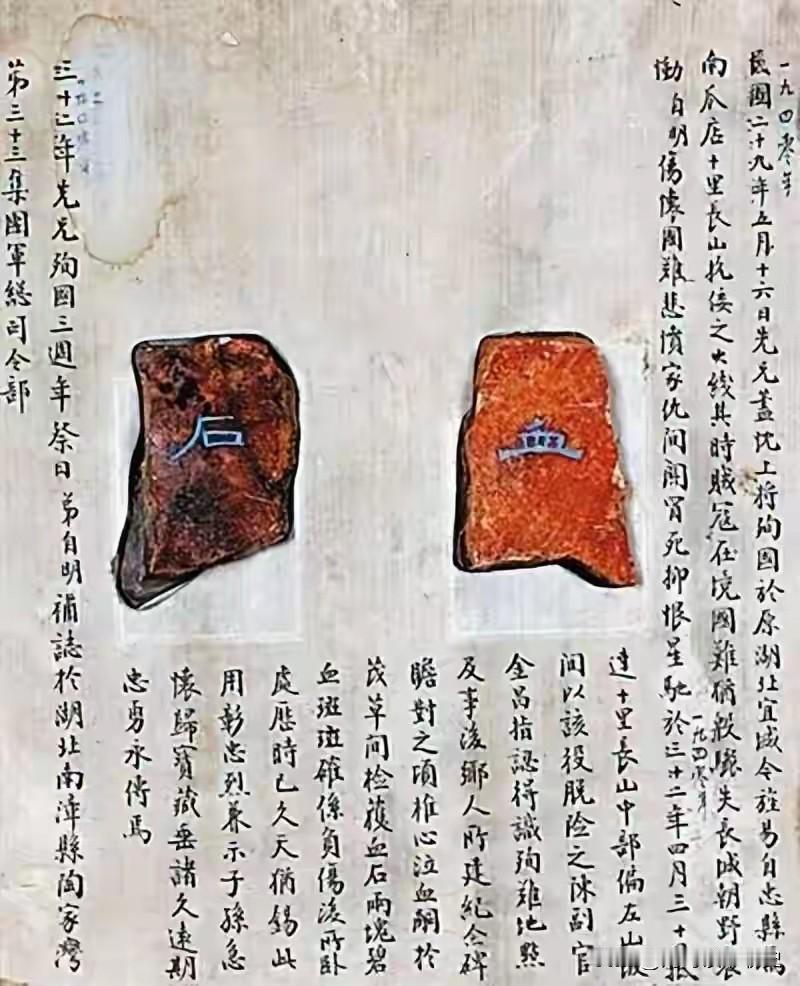 一九四零年
民國二十九年五月十六日先兄藎忱上將殉國於原湖北宜城今旌易自忠縣屬
南瓜店十里長山抗倭之火线其時賊寇在境國難猶殷驟失長城朝野震
慟自明傷懷國難悲憤家仇间關冒死抑恨星馳於三十二年四月三十日抵
一九四零年
達十里長山中部偏左山坡
间以該役脱险之陳副官
金昌指認得識殉難地點
及事後鄉人所建紀念碑
瞻對之頃椎心泣血嗣於
茂草间檢獲血石兩塊碧
血斑斑確係負傷後所卧
處歷時已久天猶錫此
用彰忠烈兼示子孫急
懷歸寶藏垂諸久遠期
忠勇永傳焉
三十二年先兄殉國三週年祭日弟自明補誌於湖北南漳縣陶家灣
第三十三集團軍總司令部
石